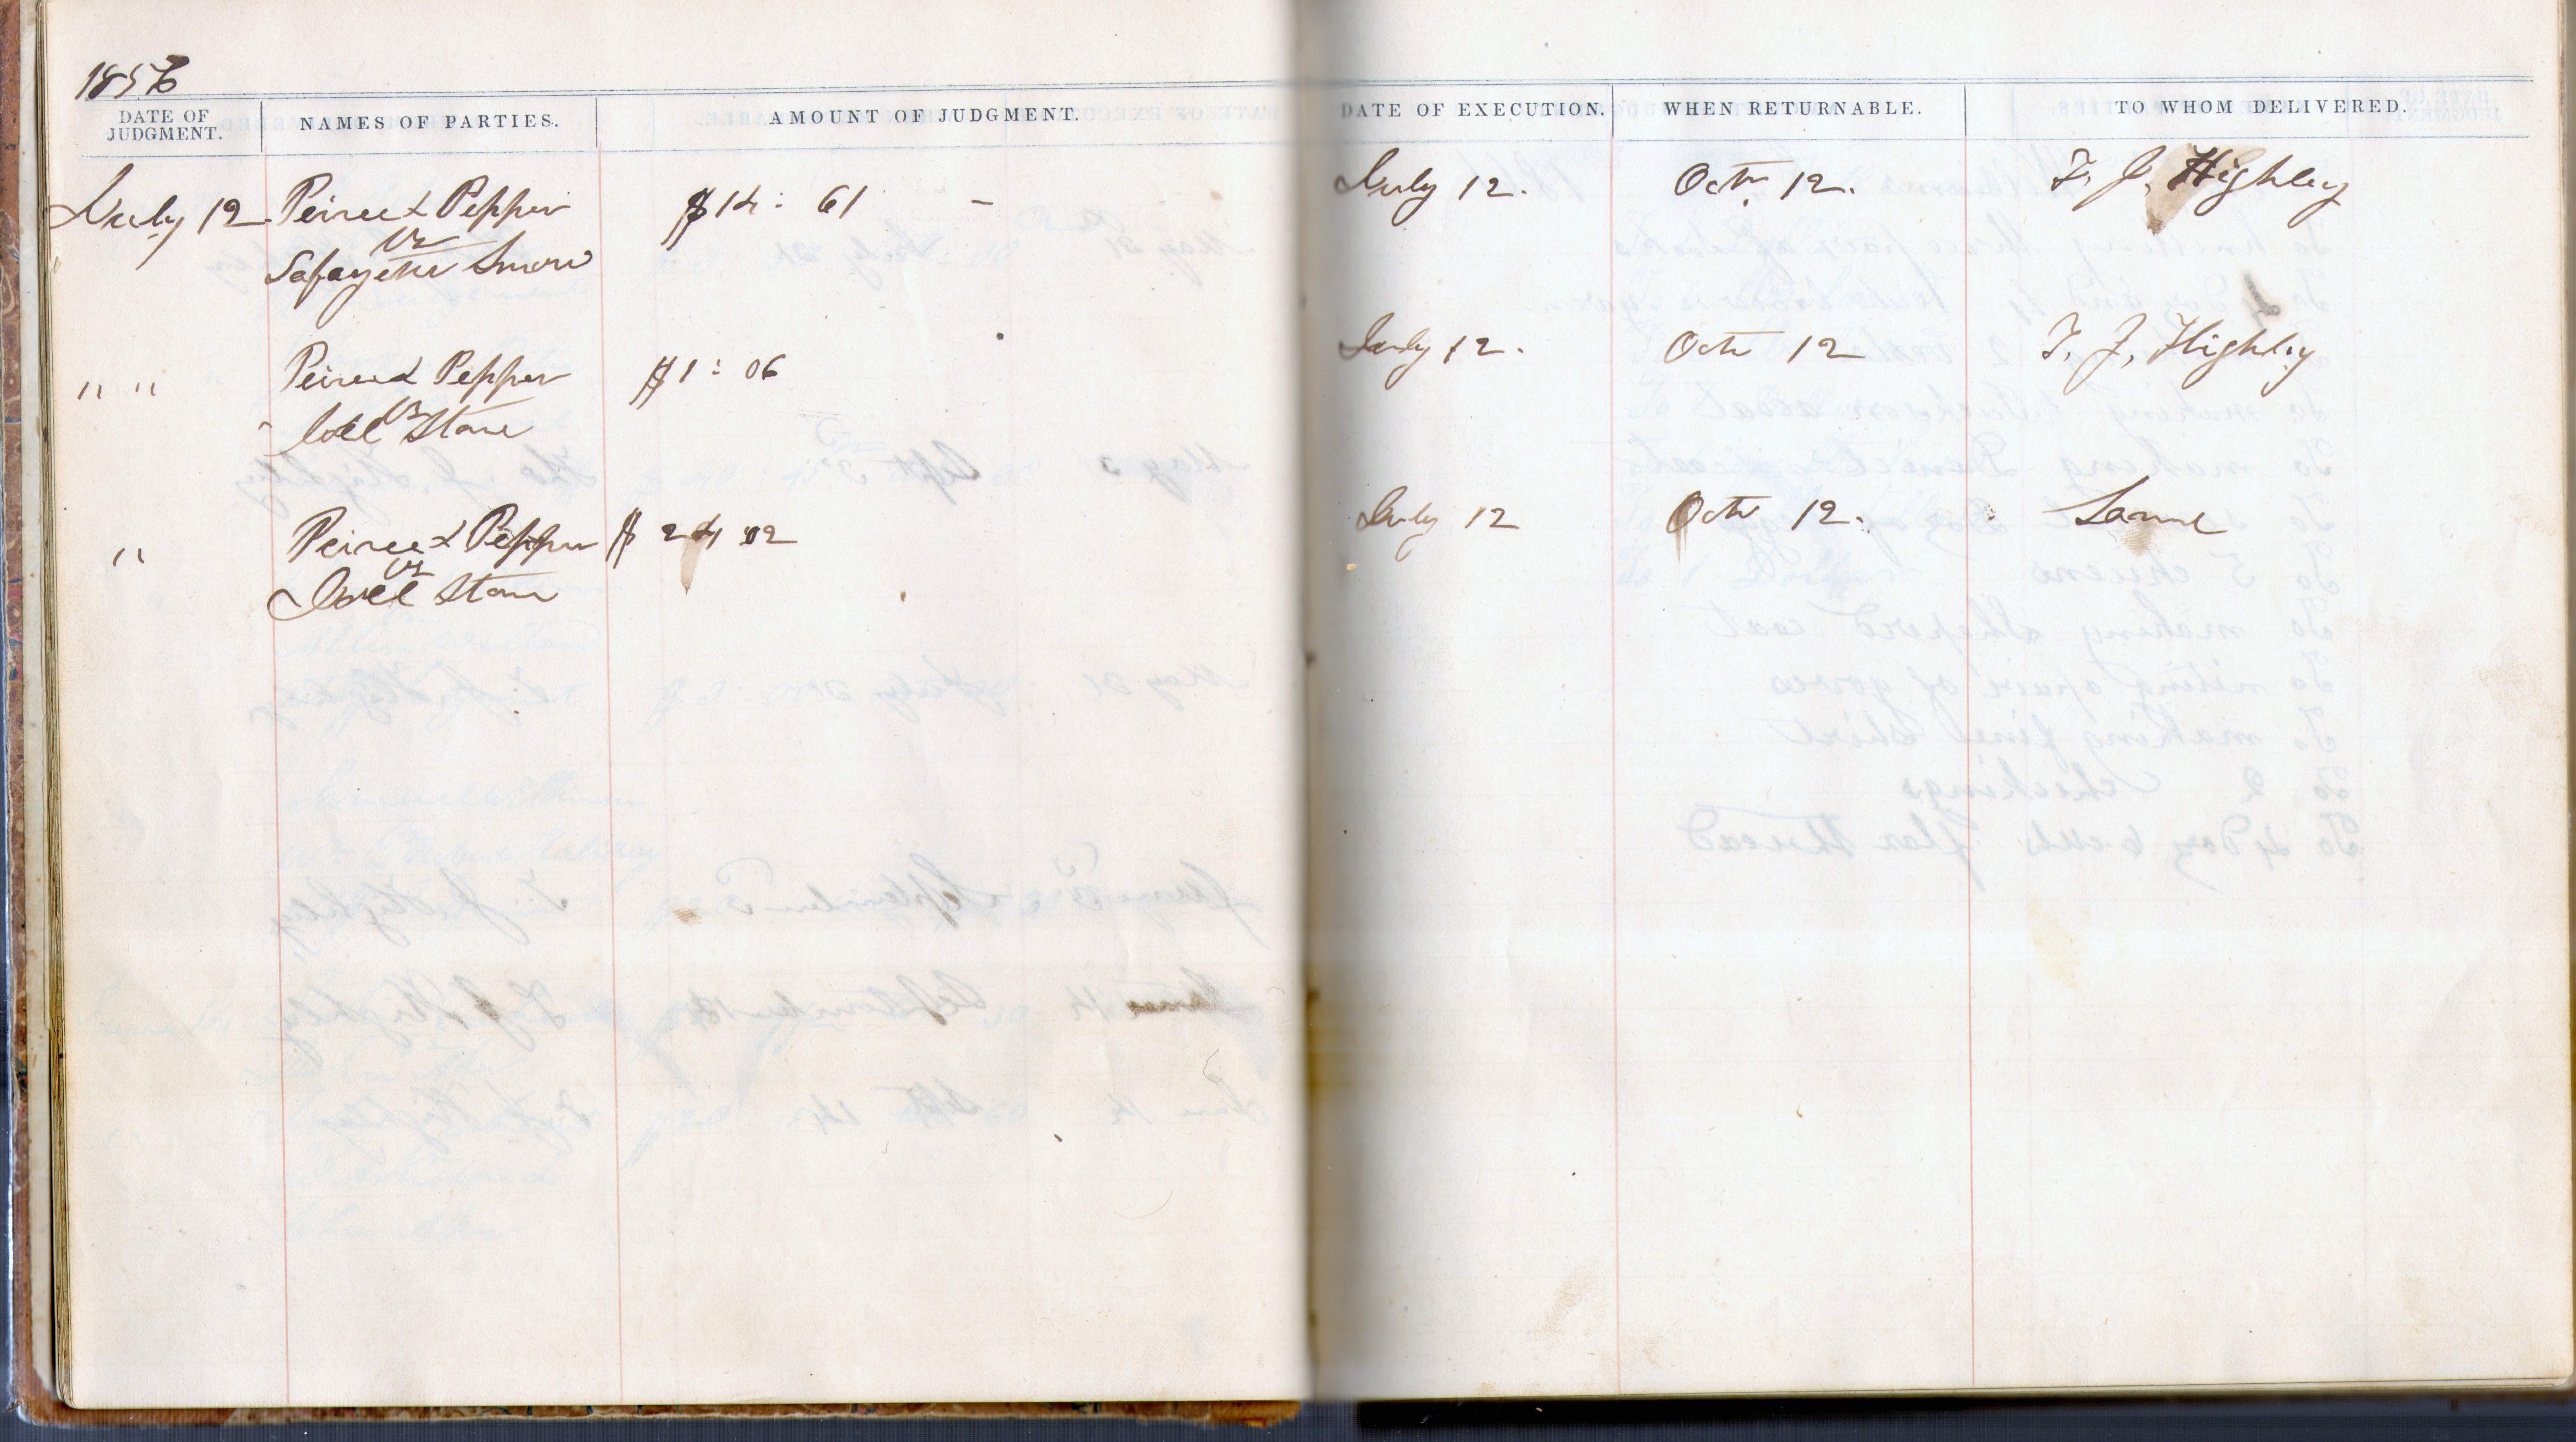 1856
DATE OF JUDGMENT. NAMES OF PARTIES. AMOUNT OF JUDGMENT. DATE OF EXECUTION. WHEN RETURNABLE. TO WHOM DELIVERED.
July 12 Peirce & Pepper $14: 61 - July 12. Octr 12. T. J. Highley
vs
Lafayette Snow
" " Peirce & Pepper $1: 06 July 12. Octr 12 T. J. Highley
vs
Joel Stone
" Peirce & Pepper $ 24 02 July 12 Octr 12. Same
vs
Joel Stone